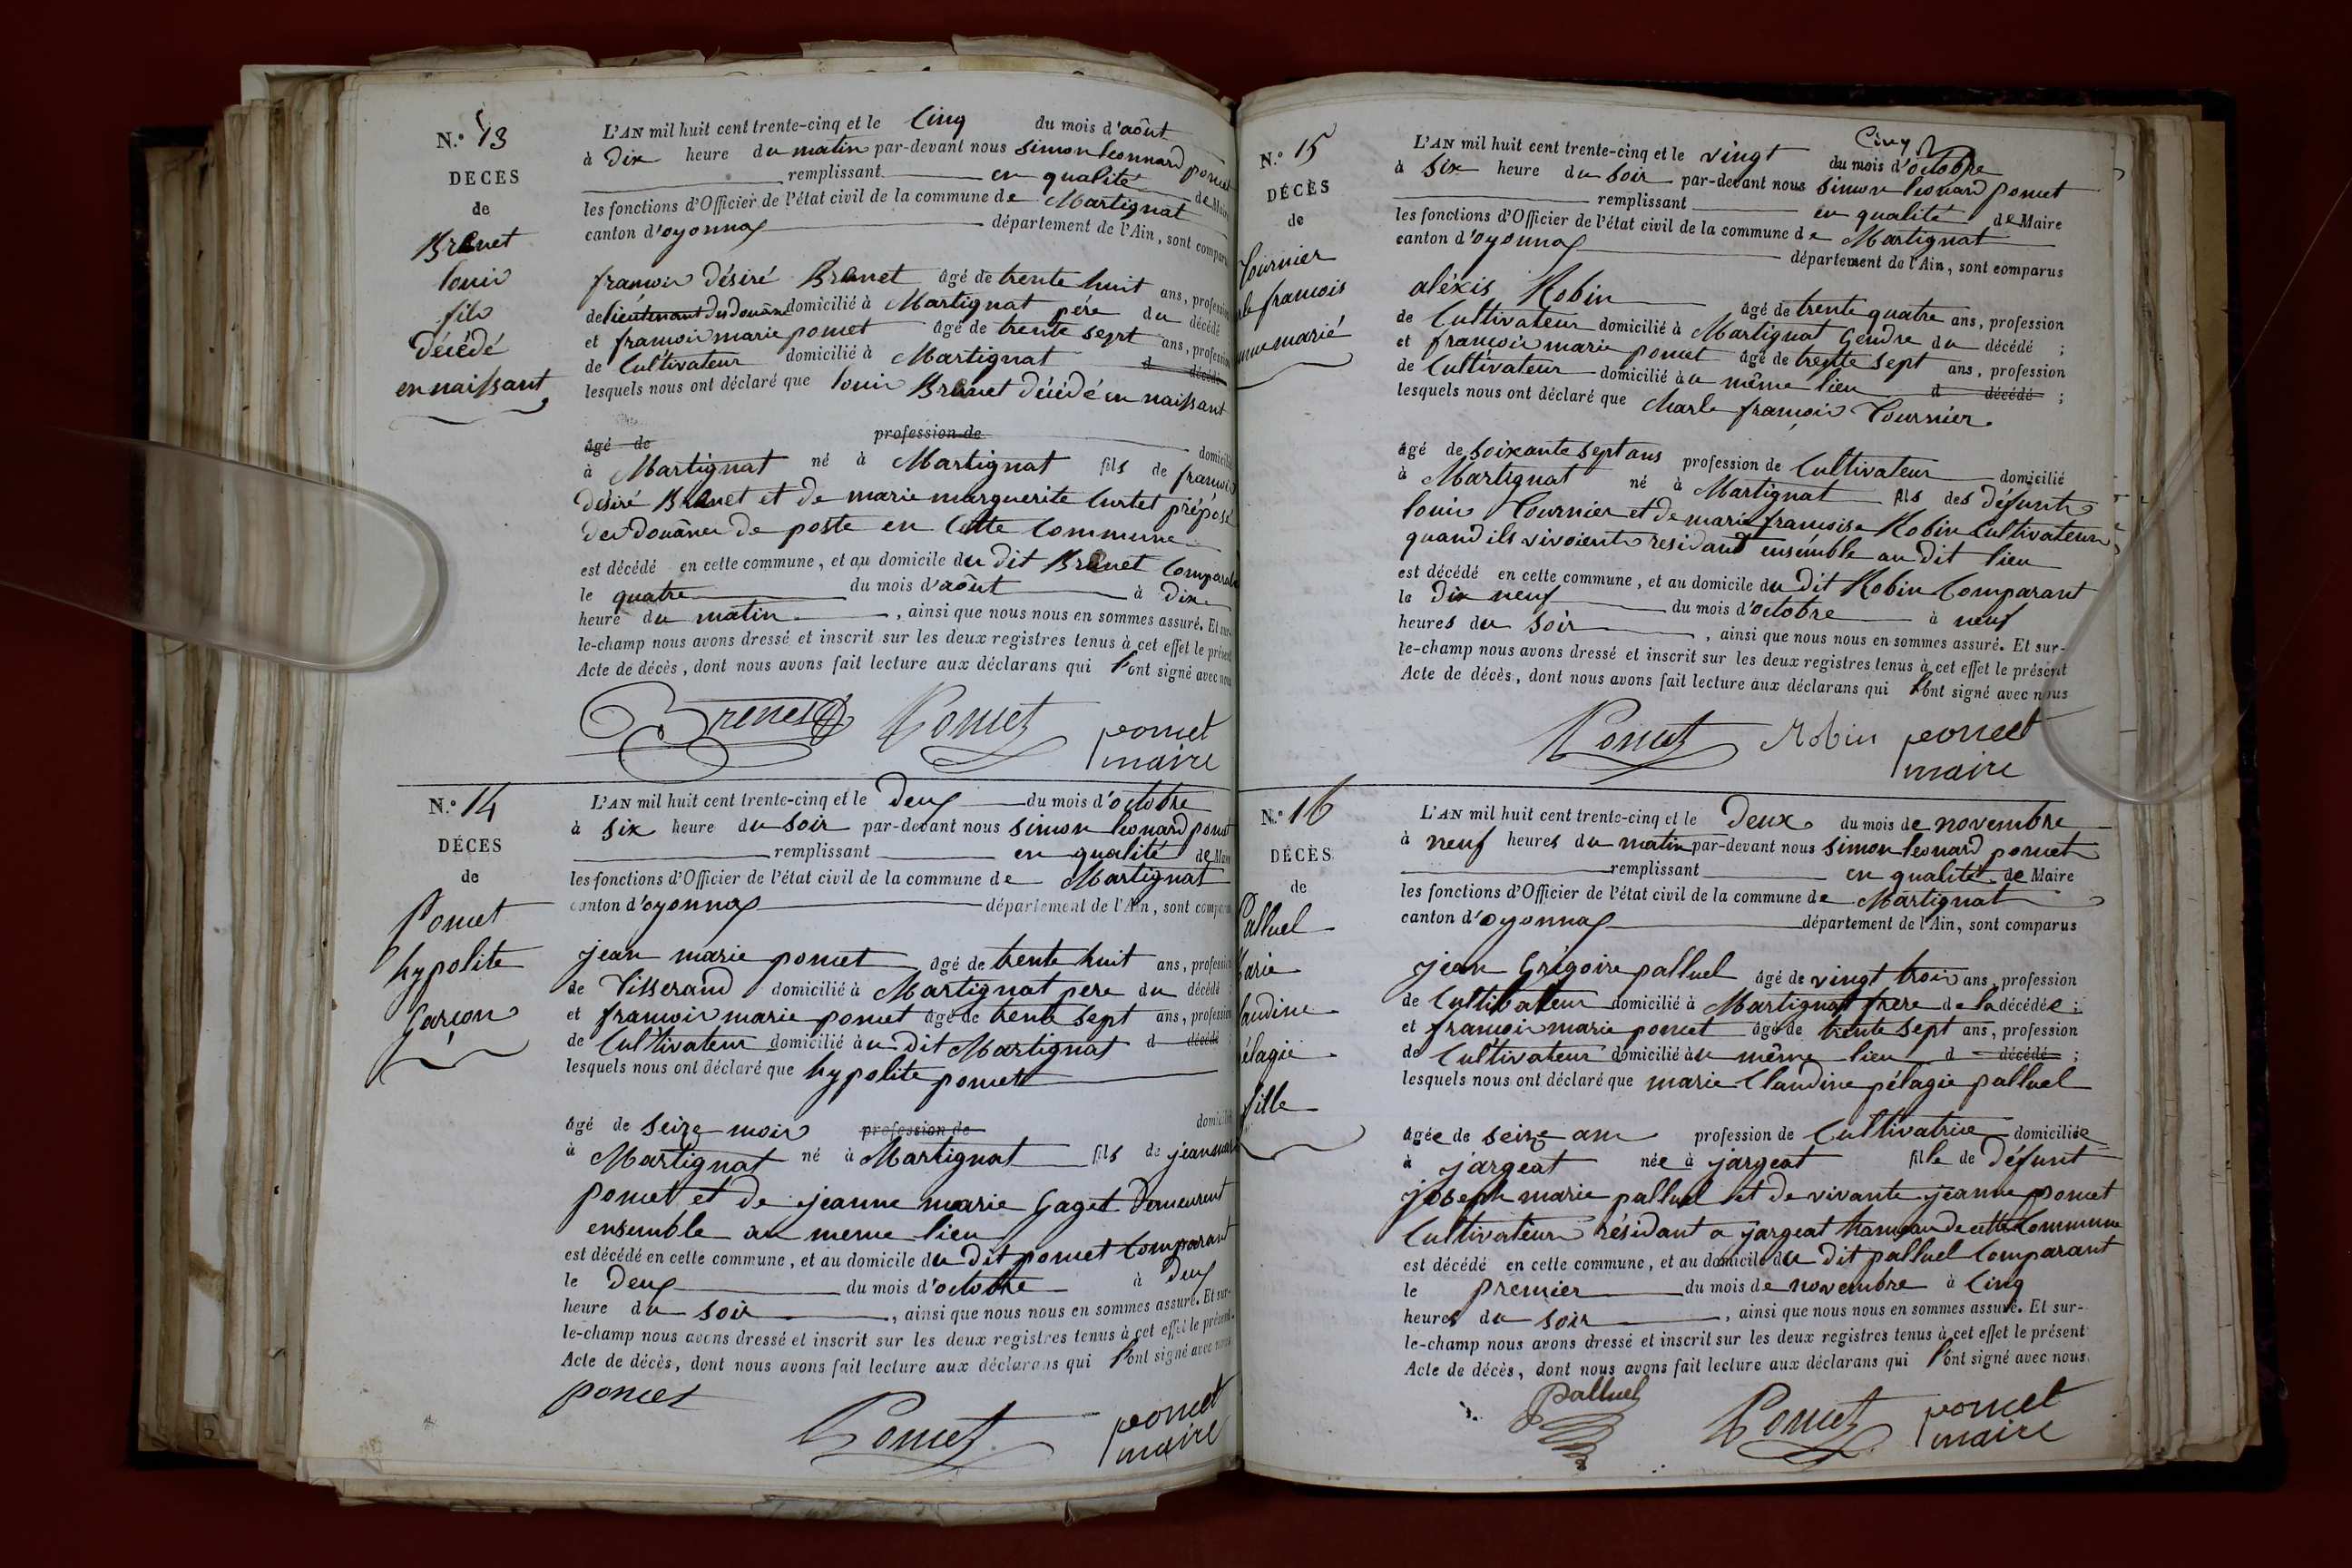 N.º 13
DECES
de
Brenet
louis
fils
décédé
en naissant
L'AN mil huit cent trente-cinq et le Cinq du mois d'août
à Dix heure du matin par-devant nous simon leonnard pomet
remplissant en qualité de Maire
les fonctions d'Officier de l'état civil de la commune de Martignat
canton d'oyonnax département de l'Ain, sont comparus
francois désiré Brenet âgé de trente huit ans, profession
de lieutenant des douanes domicilié à Martignat père du décédé
et francois marie pomet âgé de trente sept ans, profession
de Cultivateur domicilié à Martignat d décédé
lesquels nous ont déclaré que louis Brenet décédé en naissant
âgé de profession de domicilié
à Martignat né à Martignat fils de francois
désiré Brenet et de marie marguerite Curtet préposé
des douânes de poste en Cette Commune
est décédé en cette commune, et au domicile du dit Brenet Comparant
le quatre du mois d'août à Dix
heure du matin, ainsi que nous nous en sommes assuré. Et sur-
le-champ nous avons dressé et inscrit sur les deux registres tenus à cet effet le présent
Acte de décès, dont nous avons fait lecture aux déclarans qui l'ont signé avec nous
Brenet Pomet pomet
maire
N.º 14
DÉCES
de
Pomet
hypolite
Garçon
L'AN mil huit cent trente-cinq et le Deux du mois d'octobre
à six heure du soir par-devant nous simon leonard pomet
remplissant en qualité de Maire
les fonctions d'Officier de l'état civil de la commune de Martignat
canton d'oyonnax département de l'Ain, sont comparus
jean marie pomet âgé de trente huit ans, profession
de Tisserand domicilié à Martignat pere du décédé
et francois marie pomet âgé de trente sept ans, profession
de Cultivateur domicilié au dit Martignat d décédé
lesquels nous ont déclaré que hypolite pomet
âgé de seize mois profession de domicilié
à Martignat né à Martignat fils de jean marie
pomet et de jeanne marie Gaget Demeurent
ensemble au meme lieu
est décédé en cette commune, et au domicile du Dit pomet Comparant
le Deux du mois d'octobre à Deux
heure du soir, ainsi que nous nous en sommes assuré. Et sur-
le-champ nous avons dressé et inscrit sur les deux registres tenus à cet effet le présent
Acte de décès, dont nous avons fait lecture aux déclarans qui l'ont signé avec nous
pomet
Pomet pomet
maire
N.º 15
DÉCÈS
de
Tournier
le francois
marié
Cinq
L'AN mil huit cent trente-cinq et le vingt du mois d'octobre
à six heure du soir par-devant nous simon leonard pomet
remplissant en qualité de Maire
les fonctions d'Officier de l'état civil de la commune de Martignat
canton d'oyonnax département de l'Ain, sont comparus
aléxis Robin âgé de trente quatre ans, profession
de Cultivateur domicilié à Martignat Gendre du décédé ;
et françois marie pomet âgé de trente sept ans, profession
de Cultivateur domicilié au même lieu d décédé ;
lesquels nous ont déclaré que Charle françois Tournier
âgé de soixante sept ans profession de Cultivateur domicilié
à Martignat né à Martignat fils des défunts
louis Tournier et de marie francoise Robin Cultivateurs
quand ils vivoients residant ensemble au dit lieu
est décédé en cette commune, et au domicile du Dit Robin Comparant
le Dix neuf du mois d'octobre à neuf
heures du soir, ainsi que nous nous en sommes assuré. Et sur-
le-champ nous avons dressé et inscrit sur les deux registres tenus à cet effet le présent
Acte de décès, dont nous avons fait lecture aux déclarans qui l'ont signé avec nous
Pomet Robin pomet
maire
N.º 16
DÉCÈS
de
Palluel
Marie
Claudine
pélagie
fille
L'AN mil huit cent trente-cinq et le Deux du mois de novembre
à neuf heures du matin par-devant nous simon leonard pomet
remplissant en qualité de Maire
les fonctions d'Officier de l'état civil de la commune de Martignat
canton d'oyonnax département de l'Ain, sont comparus
jean Grégoire palluel âgé de vingt trois ans, profession
de Cultivateur domicilié à Martignat frere de la décédée ;
et françois marie pomet âgé de trente sept ans, profession
de Cultivateur domicilié au même lieu d décédé ;
lesquels nous ont déclaré que marie Claudine pélagie palluel
âgée de seize ans profession de Cultivatrice domiciliée
à jargeat née à jargeat fille de Défunt
joseph marie palluel et de vivante jeanne pomet
Cultivateurs résidant a jargeat hameau de cette Commune
est décédé en cette commune, et au domicile du Dit palluel Comparant
le premier du mois de novembre à Cinq
heures du soir, ainsi que nous nous en sommes assuré. Et sur-
le-champ nous avons dressé et inscrit sur les deux registres tenus à cet effet le présent
Acte de décès, dont nous avons fait lecture aux déclarans qui l'ont signé avec nous
Palluel Pomet pomet
maire